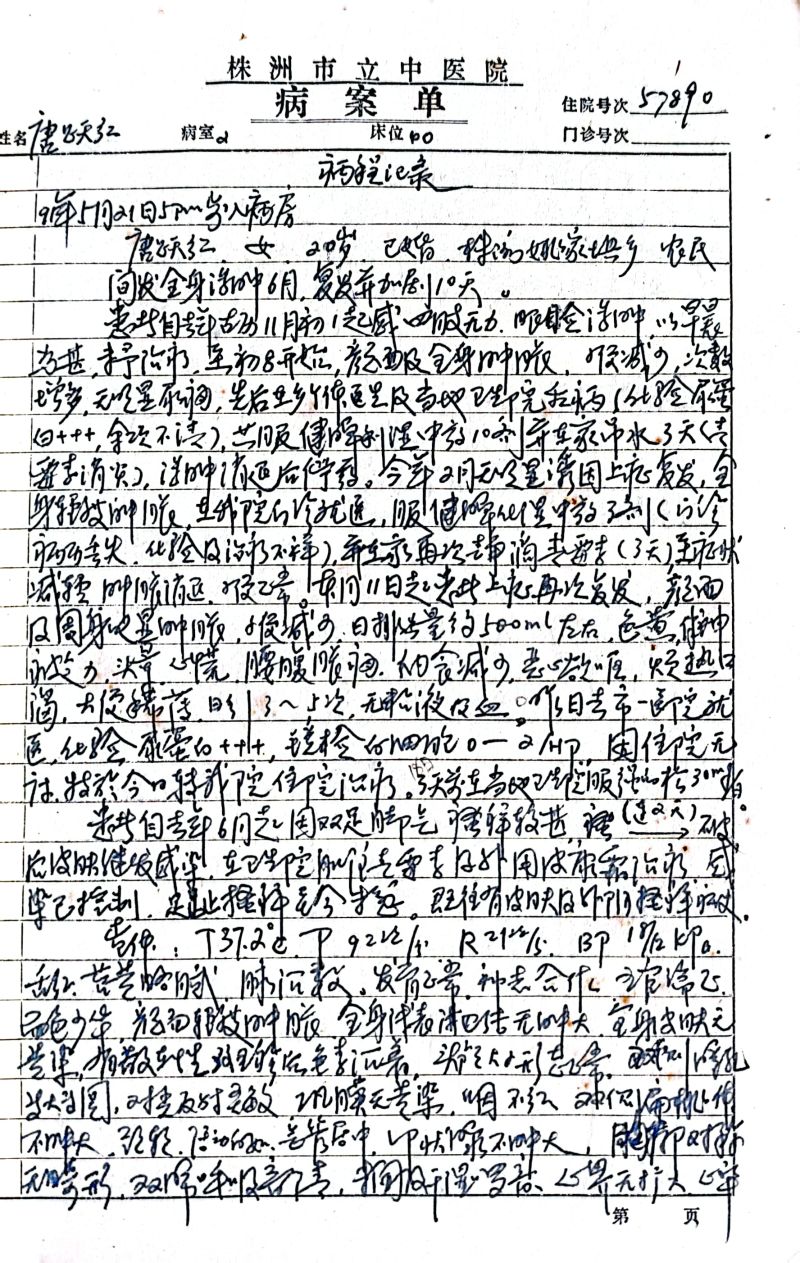 株洲市立中医院
病案单
住院号次 57890
姓名 唐跃红 病室2 床位40 门诊号次
病程记录
91年5月21日5pm 步入病房
唐跃红 女 20岁 已婚 株洲姚家坝乡 农民
间发全身浮肿6月,复发并加剧10天。
患者自去年古历11月初1起感四肢无力,眼睑浮肿,以早晨
为甚,未予治疗,至初8开始,颜面及全身肿胀,小便减少,次数
增多,无明显尿痛,先后在乡个体医生及当地卫生院看病(化验尿蛋
白+++,余项不清),共服健脾利湿中药10剂并在家吊水3天(青
霉素消炎),浮肿消退后停药。今年2月无明显诱因上症复发,全
身轻度肿胀,在我院门诊就医,服健脾化湿中药3剂(门诊
病历丢失,化验及治疗不详),并在家再次静滴青霉素(3天)至症状
减轻 肿胀消退,小便正常。本月11日起患者上症再次复发,颜面
及周身明显肿胀,小便减少,日排出量约500ml左右,色黄,
疲乏力,头晕,心慌,腰腹胀痛,纳食减少,恶心欲呕,烦热口
渴,大便稀薄,日行3~5次,无粘液及血。昨日去市一医院就
医,化验尿蛋白+++,镜检白细胞0—2/HP 因住院无
床,特于今日转我院住院治疗。3天前在当地卫生院服强的松30mg
患者自去年6月起因双足脚气瘙痒较甚,搔(连2天)→破
后皮肤继发感染,在卫生院肌注青霉素及外用皮康霜治疗,感
染已控制,足趾搔痒至今未愈。既往有皮肤及外阴搔痒病史。
查体:T37.2℃ P 92次/分 R 21次/分 BP 18/12 KPa
舌红 苔黄略腻 脉沉数。发育正常,神志合作,
面色少华,颜面轻度肿胀,全身体表淋巴结无肿大,全身皮肤无
黄染,有散在性 后色素沉着,头颅大小形态正常,双侧瞳孔
等大等圆,对光反射灵敏 巩膜无黄染,咽不红 双侧扁桃体
不肿大,颈软,活动自如,气管居中,甲状腺不肿大,胸廓对称
无畸形,双肺呼吸音清,未闻及干湿罗音,心界无扩大,心率
第 页